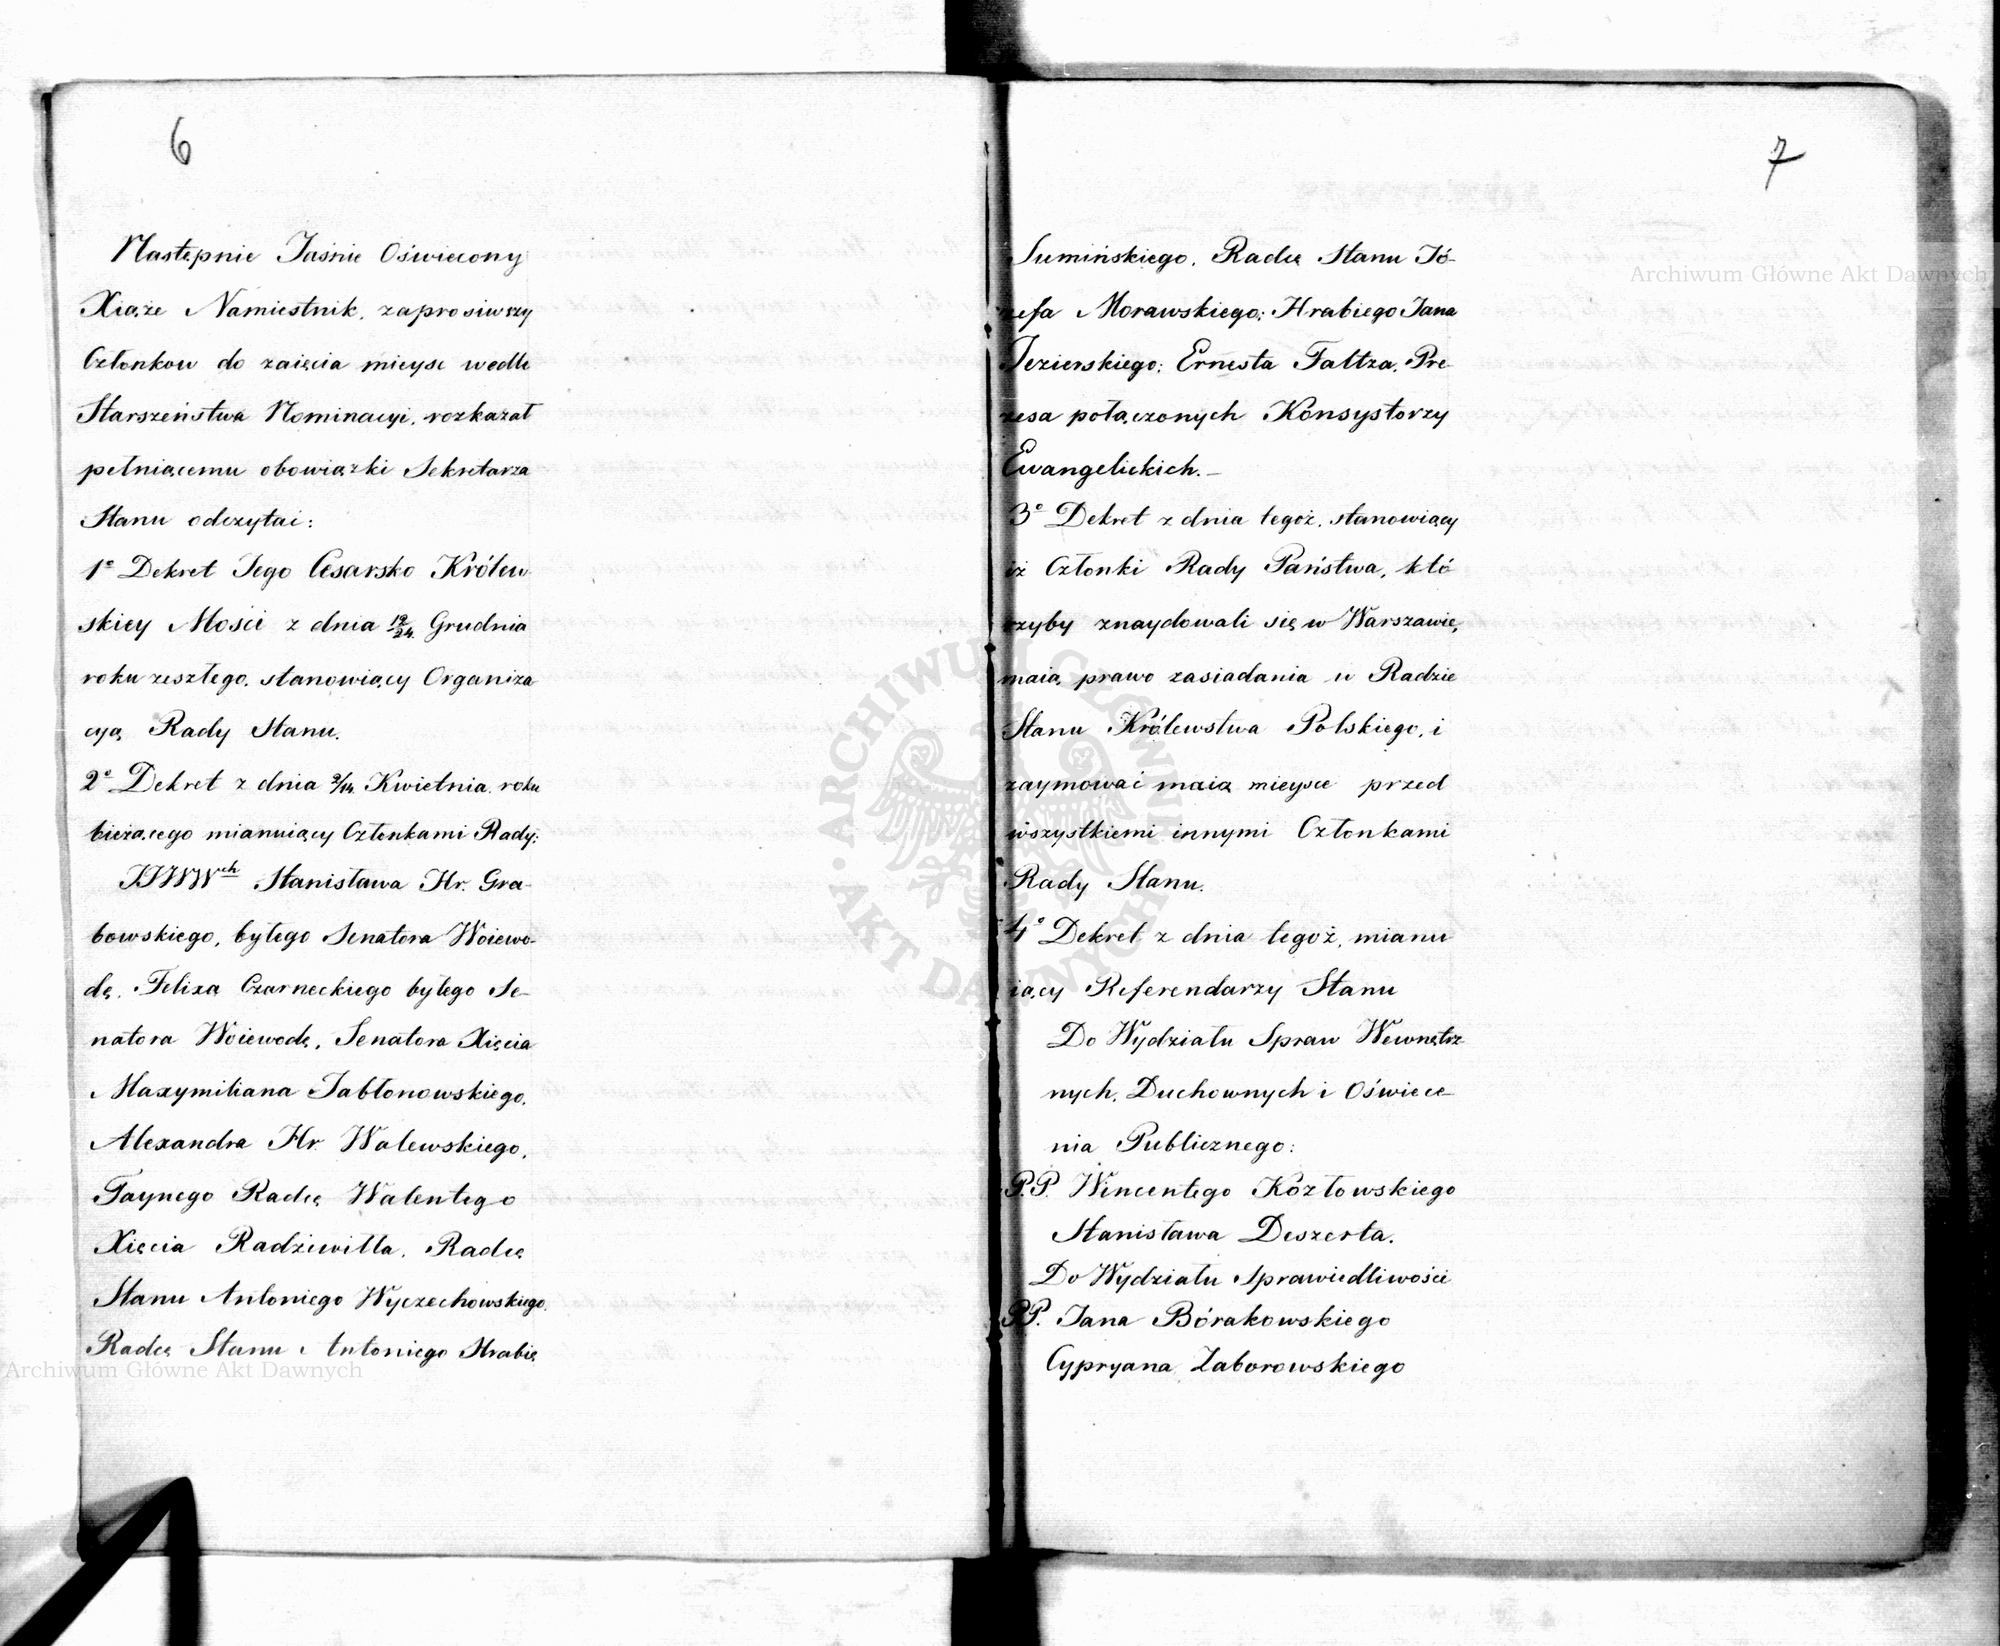 6
Następnie Jaśnie Oświecony
Xiąże Namiestnik, zaprosiwszy
Członkow do zaięcia mieysc wedle
Starszeństwa Nominacyi, rozkazał
pełniącemu obowiązki Sekretarza
Stanu odczytać:
1° Dekret Jego Cesarsko Królew
skiey Mości z dnia 12/24 Grudnia
roku zeszłego, stanowiący Organiza
cyą Rady Stanu.
2° Dekret z dnia 2/14 Kwietnia roku
bieżącego mianuiący Członkami Rady:
JJWW^ch Stanisława Hr. Gra-
bowskiego, byłego Senatora Woiewo-
dę, Felixa Czarneckiego byłego Se-
natora Woiewodę, Senatora Xięcia
Maxymiliana Jabłonowskiego,
Alexandra Hr. Walewskiego,
Taynego Radcę Walentego
Xięcia Radziwiłła, Radcę
Stanu Antoniego Wyczechowskiego,
Radcę Stanu Antoniego Hrabię
7
Sumińskiego, Radcę Stanu Jó-
zefa Morawskiego; Hrabiego Jana
Jezierskiego; Ernesta Faltza, Pre-
zesa połączonych Konsystorzy
Ewangelickich.—
3° Dekret z dnia tegoż, stanowiący
iż Członki Rady Państwa, któ
rzyby znaydowali się w Warszawie,
maią prawo zasiadania w Radzie
Stanu Królewstwa Polskiego, i
zaymować maią mieysce przed
wszystkiemi innymi Członkami
Rady Stanu.
4° Dekret z dnia tegoż, mianu
iący Referendarzy Stanu
Do Wydziału Spraw Wewnętrz
nych, Duchownych i Oświece-
nia Publicznego:
P.P. Wincentego Kozłowskiego
Stanisława Deszerta.
Do Wydziału Sprawiedliwości
PP. Jana Bórakowskiego
Cypryana Zaborowskiego
Archiwum Główne Akt Dawnych
Archiwum Główne Akt Dawnych
ARCHIWUM GŁÓWNE AKT DAWNYCH